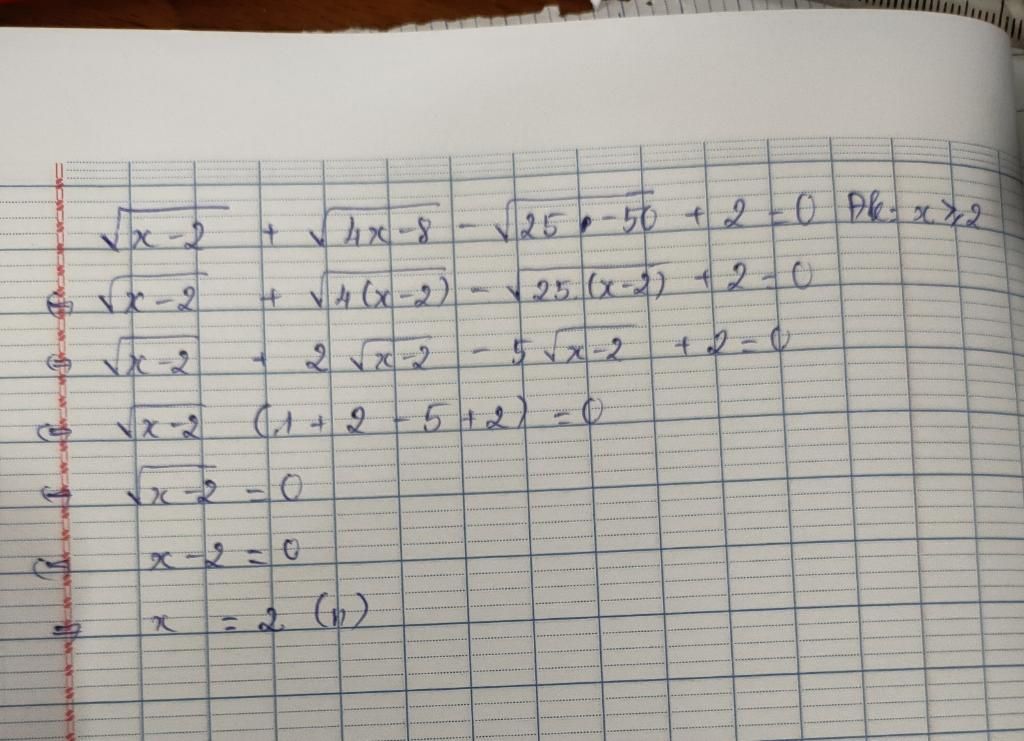 √(x-2) + √(4x-8) - √(25 • -50) + 2 = 0 Đk: x ⩾ 2
⇔ √(x-2) + √(4(x-2)) - √(25.(x-2)) + 2 = 0
⇔ √(x-2) + 2 √(x-2) - 5 √(x-2) + 2 = 0
⇔ √(x-2) (1 + 2 - 5 + 2) = 0
⇔ √(x-2) = 0
⇔ x - 2 = 0
⇔ x = 2 (n)